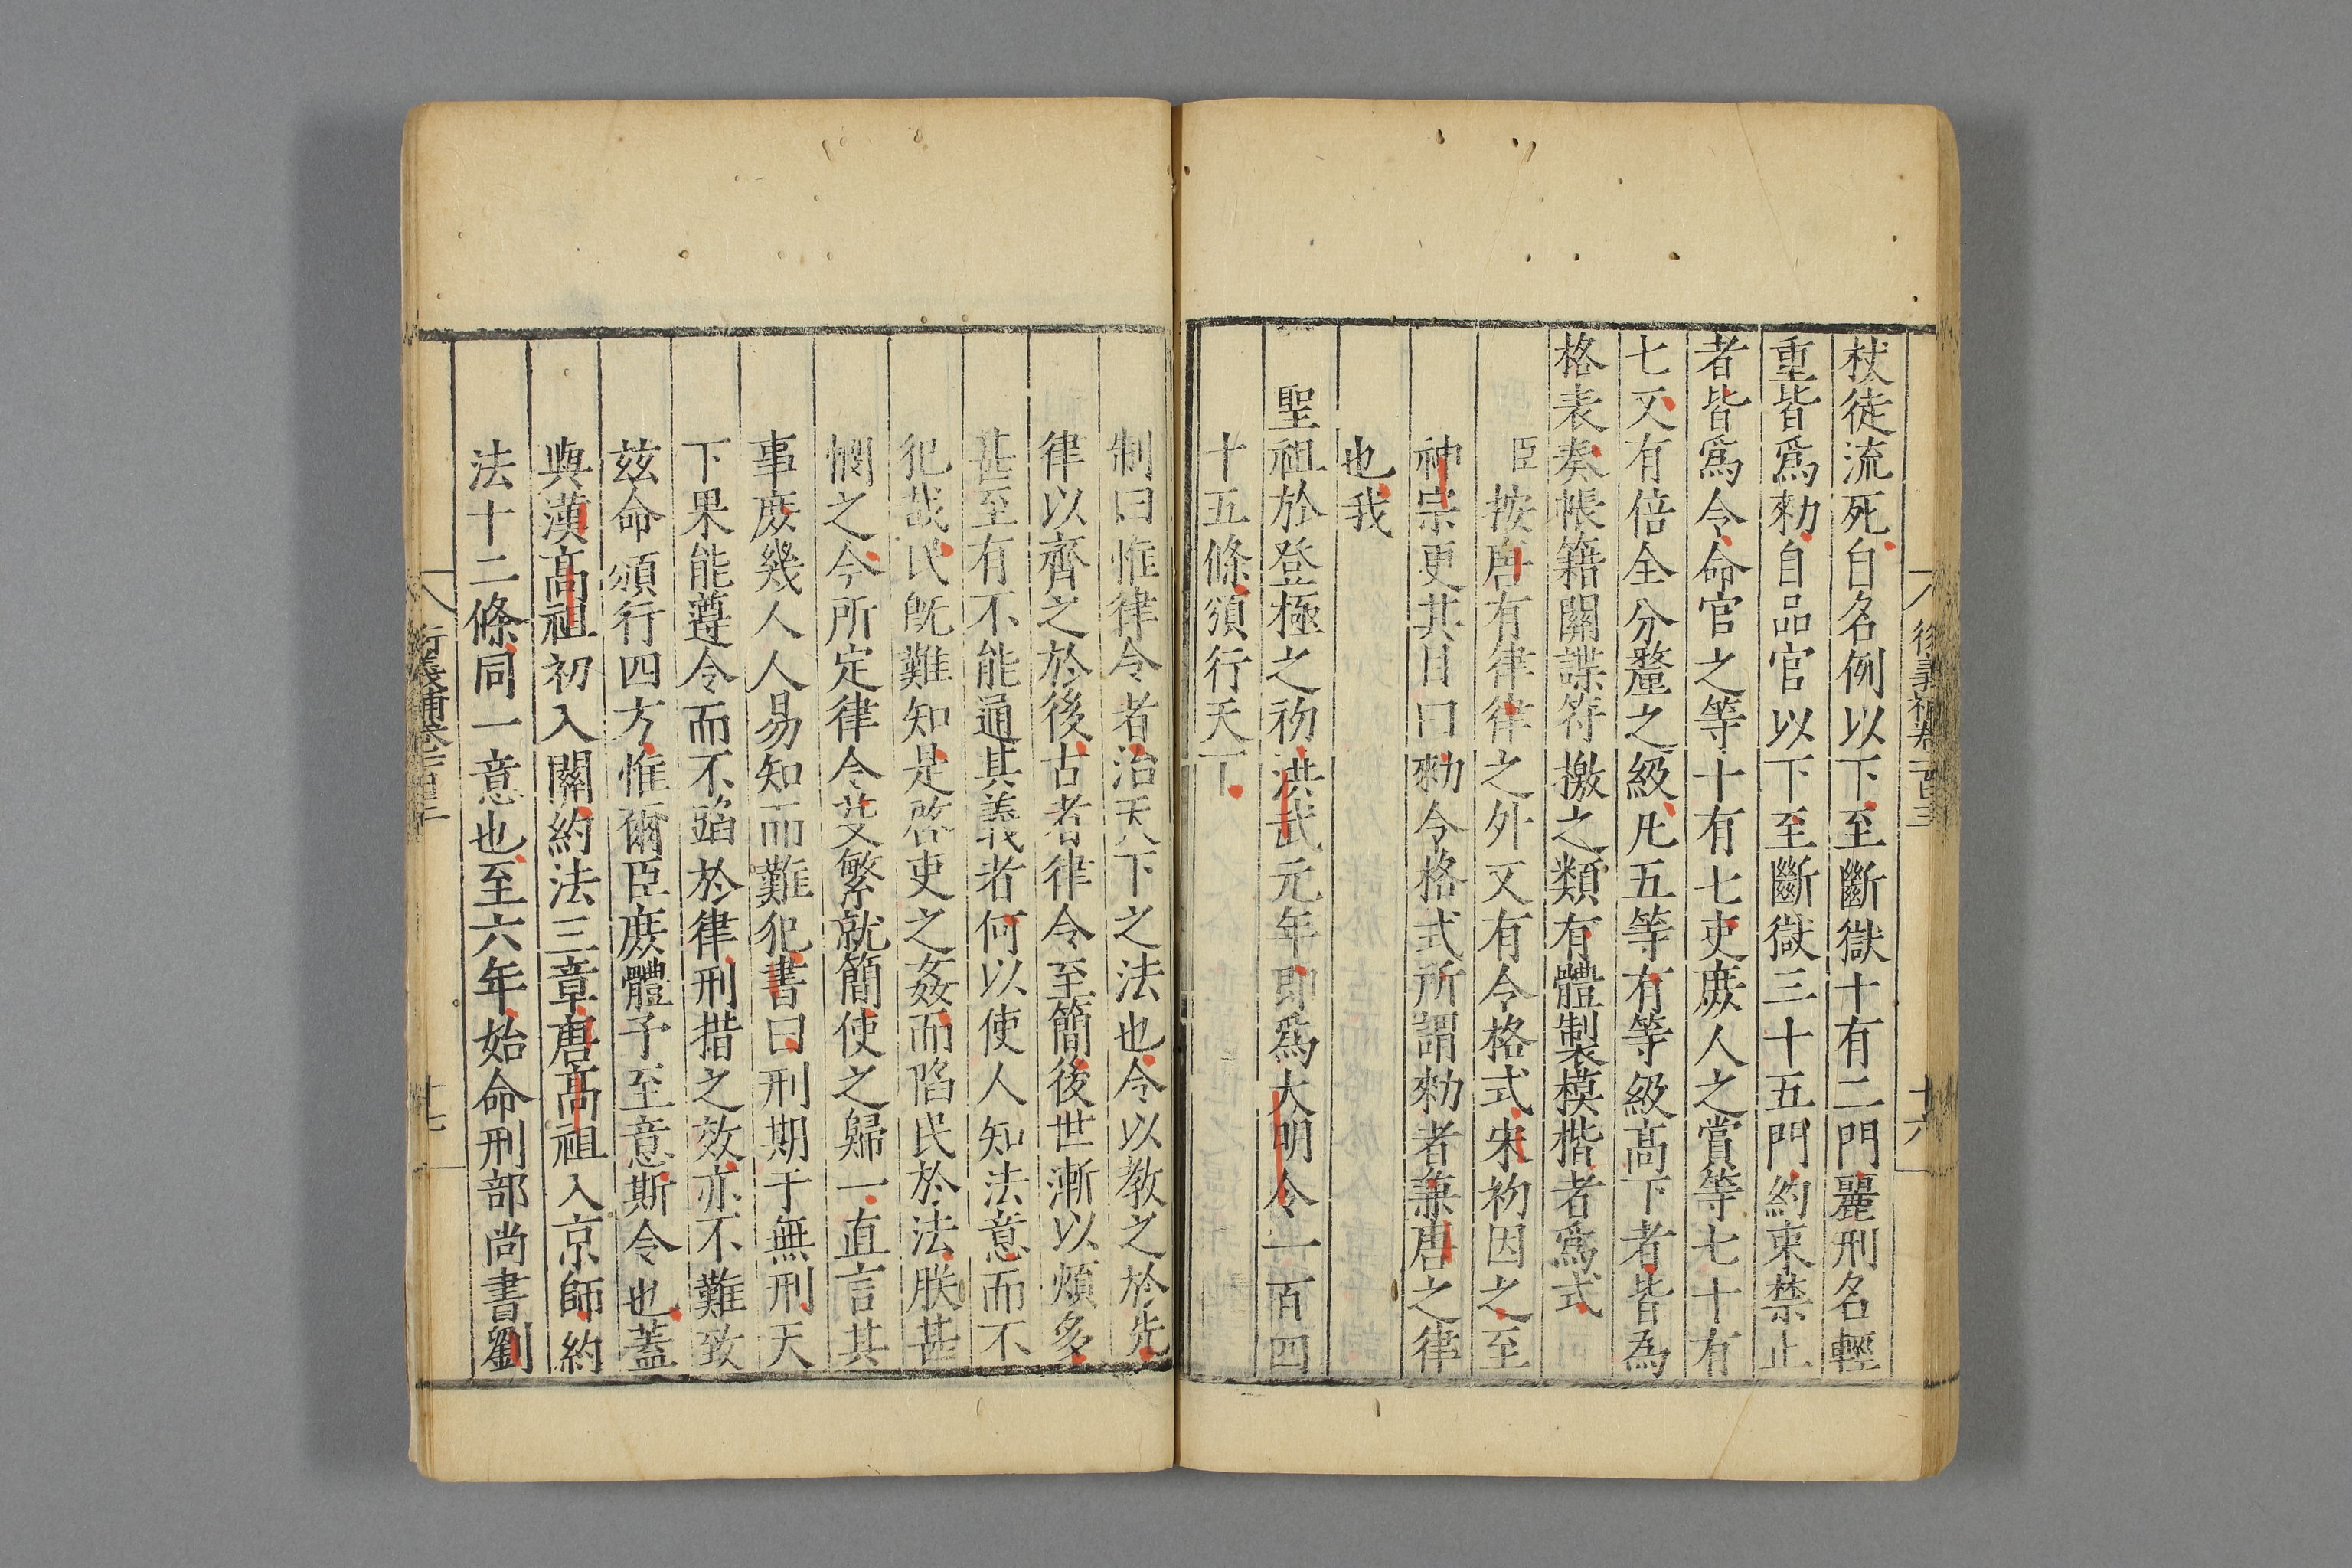 杖徒流死自名例以下至斷獄十有二門麗刑名輕
重皆爲勑自品官以下至斷獄三十五門約束禁止
者皆爲令命官之等十有七吏庻人之賞等七十有
七又有倍全分釐之級凡五等有等級髙下者皆為
格表奏帳籍關諜符撽之類有體製模楷者爲式
臣按唐有律律之外又有令格式宋初因之至
神宗更其目曰勑令格式所謂勑者兼唐之律
也我
聖祖於登極之初洪武元年即爲大明令一百四
十五條頒行天下
制曰惟律令者治天下之法也令以教之於先
律以齊之於後古者律令至簡後世漸以煩多
甚至有不能通其義者何以使人知法意而不
犯哉民既難知是啓吏之姦而陷民於法朕甚
憫之今所定律令芟繁就簡使之歸一直言其
事庻幾人人易知而難犯書曰刑期于無刑天
下果能遵令而不蹈於律刑措之效亦不難致
兹命頒行四方惟爾臣庻體予至意斯令也蓋
與漢髙祖初入關約法三章唐髙祖入京師約
法十二條同一意也至六年始命刑部尚書劉